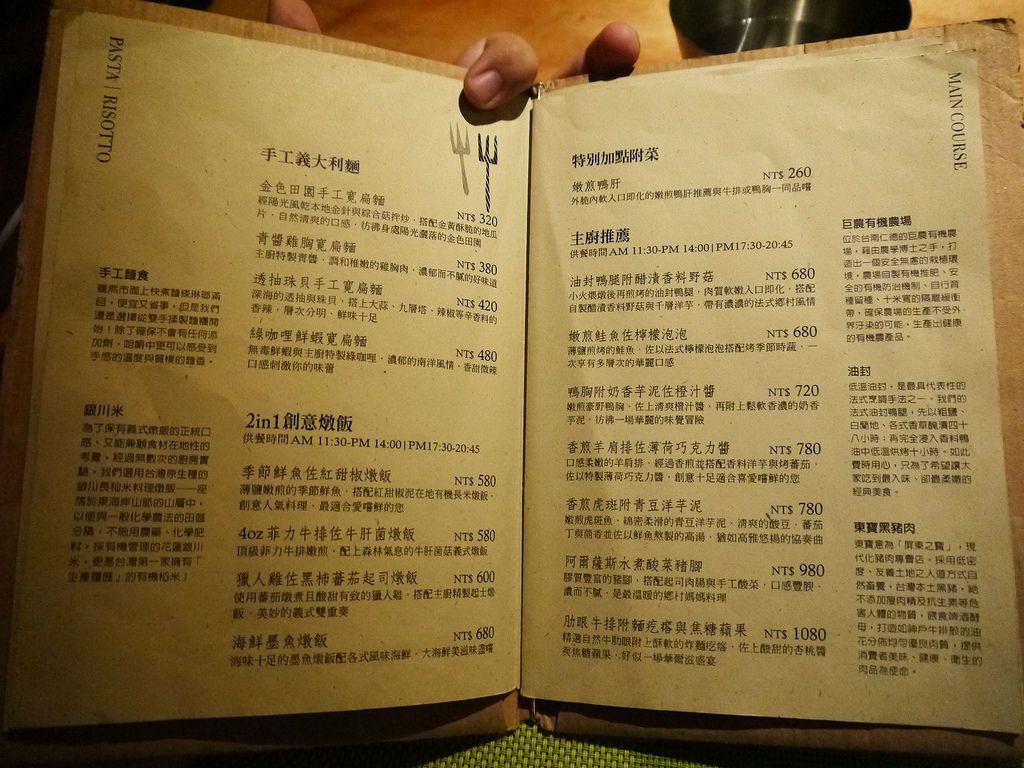 PASTA | RISOTTO
手工義大利麵
金色田園手工寬扁麵 NT$ 320
經陽光風乾本地金針與綜合菇拌炒，搭配金黃酥脆的地瓜
片，自然清爽的口感，彷彿身處陽光灑落的金色田園
青醬雞胸寬扁麵 NT$ 380
主廚特製青醬，調和稚嫩的雞胸肉，濃郁而不膩的好味道
透抽珠貝手工寬扁麵 NT$ 420
深海的透抽與珠貝、搭上大蒜、九層塔、辣椒等辛香料的
香辣，層次分明、鮮味十足
綠咖哩鮮蝦寬扁麵 NT$ 480
無毒鮮蝦與主廚特製綠咖哩，濃郁的南洋風情，香甜微辣
口感刺激你的味蕾
2in1創意燉飯
供餐時間 AM 11:30-PM 14:00 | PM17:30-20:45
季節鮮魚佐紅甜椒燉飯 NT$ 580
薄鹽嫩煎的季節鮮魚，搭配紅甜椒泥在地有機長米燉飯，
創意人氣料理，最適合愛嚐鮮的您
4oz 菲力牛排佐牛肝菌燉飯 NT$ 580
頂級菲力牛排嫩煎，配上森林氣息的牛肝菌菇義式燉飯
獵人雞佐黑柿蕃茄起司燉飯 NT$ 600
使用蕃茄燉煮且酸甜有致的獵人雞，搭配主廚精製起士燉
飯，美妙的義式雙重奏
海鮮墨魚燉飯 NT$ 680
海味十足的墨魚燉飯配各式風味海鮮，大海鮮美滋味盡嚐
手工麵食
雖然市面上快煮麵條琳瑯滿
目，便宜又省事，但是我們
還是選擇從雙手揉製麵糰開
始！除了確保不會有任何添
加劑，咀嚼中更可以感受到
手感的溫度與質樸的麵香。
銀川米
為了保有義式燉飯的正統口
感、又能兼顧食材在地性的
考量，經過無數次的廚房實
驗，我們選用台灣原生種的
銀川長秈米料理燉飯——座
落於東海岸山脈的山層中，
以便與一般化學農法的田區
分隔，不施用農藥、化學肥
料，採有機管理的花蓮銀川
米，更是台灣第一家擁有「
生產履歷」的有機稻米！
MAIN COURSE
特別加點附菜
嫩煎鴨肝 NT$ 260
外脆內軟入口即化的嫩煎鴨肝推薦與牛排或鴨胸一同品嚐
主廚推薦
供餐時間 AM 11:30-PM 14:00 | PM17:30-20:45
油封鴨腿附醋漬香料野菇 NT$ 680
小火煨燉後再煎烤的油封鴨腿、肉質軟嫩入口即化，搭配
自製醋漬香料野菇與千層洋芋，帶有濃濃的法式鄉村風情
嫩煎鮭魚佐檸檬泡泡 NT$ 680
薄鹽煎烤的鮭魚，佐以法式檸檬泡泡搭配烤季節時蔬，一
次享有多層次的華麗口感
鴨胸附奶香芋泥佐橙汁醬 NT$ 720
嫩煎豪野鴨胸，佐上清爽橙汁醬，再附上鬆軟香濃的奶香
芋泥，彷彿一場華麗的味覺冒險
香煎羊肩排佐薄荷巧克力醬 NT$ 780
口感柔嫩的羊肩排，經過香煎並搭配香料洋芋與烤蕃茄，
佐以特製薄荷巧克力醬，創意十足適合喜愛嚐鮮的您
香煎虎斑附青豆洋芋泥 NT$ 780
嫩煎虎斑魚，綿密柔滑的青豆洋芋泥，清爽的酸豆、蕃茄
丁與茴香並佐以鮮魚熬製的高湯，猶如高雅悠揚的協奏曲
阿爾薩斯水煮酸菜豬腳 NT$ 980
膠質豐富的豬腳，搭配起司肉腸與手工酸菜，口感豐腴、
濃而不膩，是最溫暖的鄉村媽媽料理
肋眼牛排附麵疙瘩與焦糖蘋果 NT$ 1080
精選自然牛肋眼附上酥軟的炸麵疙瘩，佐上酸甜的杏桃醬
與焦糖蘋果，好似一場華爾滋盛宴
巨農有機農場
位於台南仁德的巨農有機農
場，藉由農學博士之手，打
造出一個安全無慮的栽植環
境，農場自製有機堆肥、安
全的有機防治機制、自行育
種留種、十米寬的隔離緩衝
帶，確保農場的生產不受外
界汙染的可能，生產出健康
的有機農產品。
油封
低溫油封，是最具代表性的
法式烹調手法之一。我們的
法式油封鴨腿，先以粗鹽、
白蘭地、各式香草醃漬四十
八小時，再完全浸入香料鴨
油中低溫烘烤十小時。如此
費時用心，只為了希望讓大
家吃到最入味、卻最柔嫩的
經典美食。
東寶黑豬肉
東寶意為「屏東之寶」，現
代化豬肉專賣店。採用低密
度、友善土地之人道方式自
然畜養，台灣本土黑豬，絕
不添加瘦肉精及抗生素等危
害人體的物質，餵食啤酒酵
母，打造如神戶牛排般的油
花分佈均勻優良肉質，提供
消費者美味、健康、衛生的
肉品為使命。